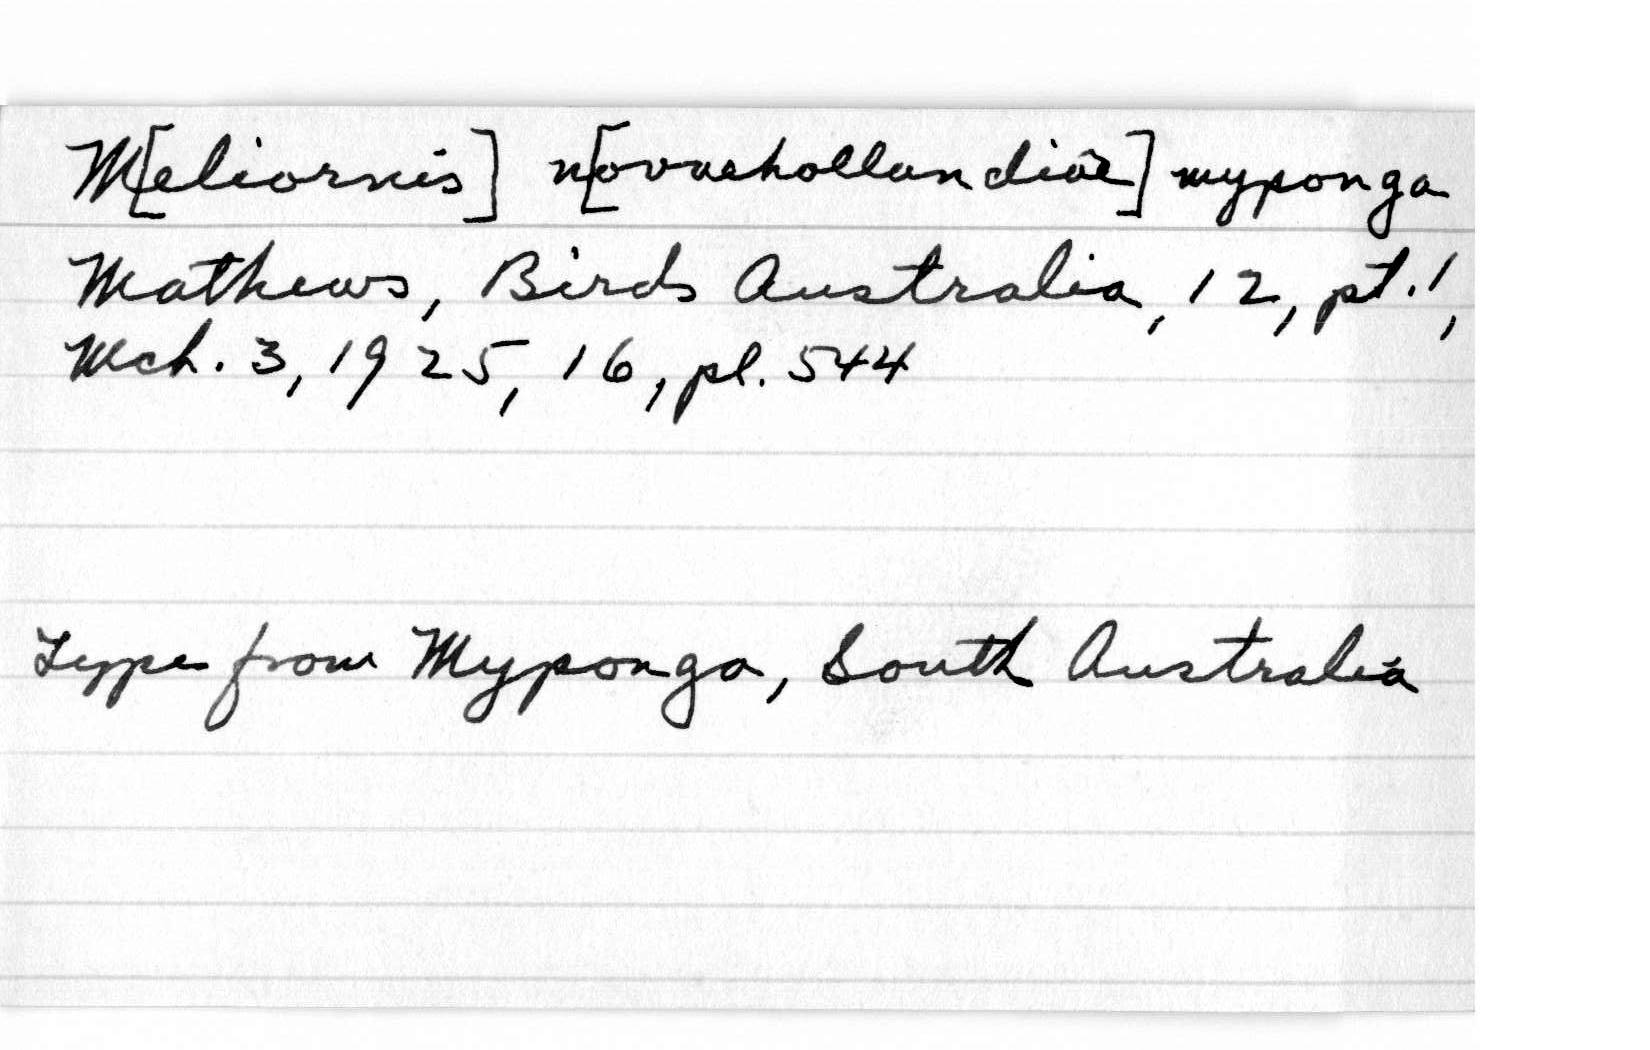 M[eliornis] n[ovaehollandiae] myponga
Mathews, Birds Australia, 12, pt. 1,
Mch. 3, 1925, 16, pl. 544
Type from Myponga, South Australia